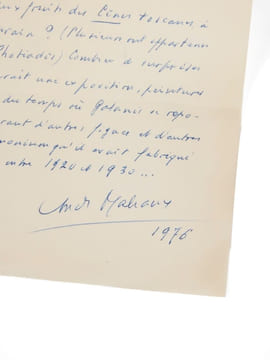 fruits des Cènes toscanes à
? (Plusieurs ont appartenu
Photiadès) Combien de surprises
rait une exposition, peintures
du temps où Galanis se repo-
rant d'autres figues et d'autres
qu'il avait fabriqué
entre 1920 et 1930...
André Malraux
1976